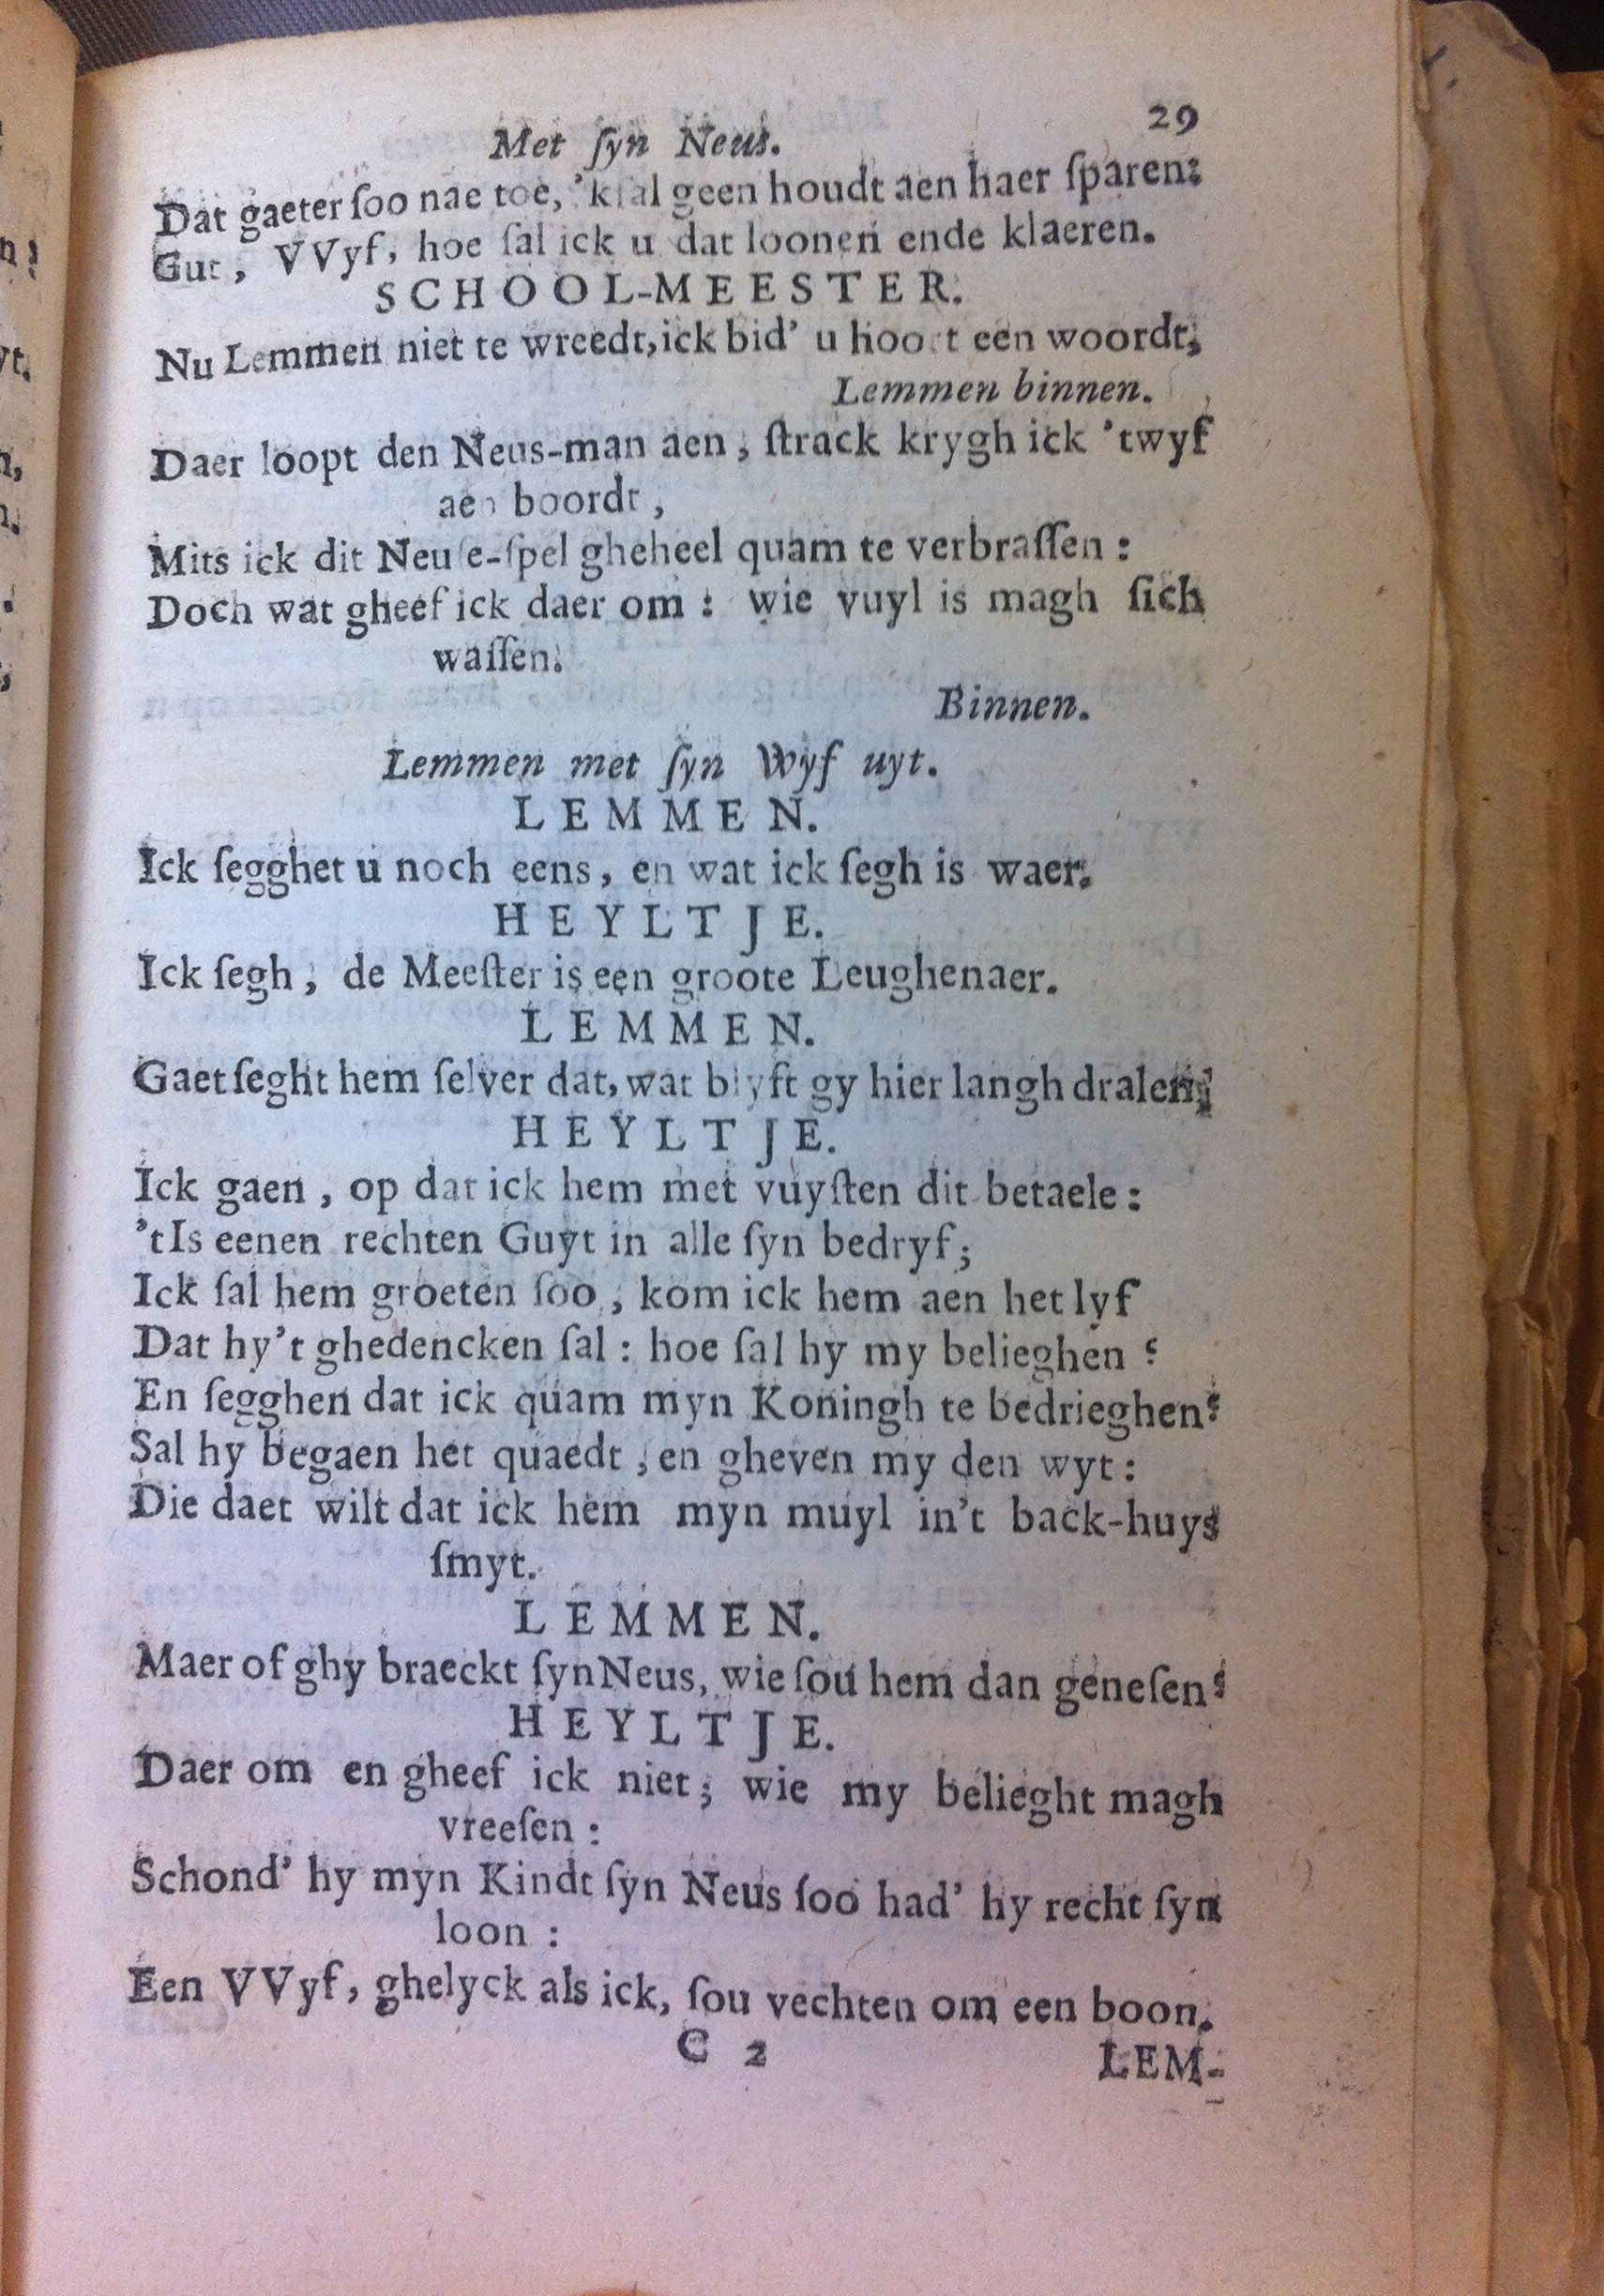 Met ſyn Neus. 29
Dat gaeter ſoo nae toe, 'k ſal geen houdt aen haer ſparen:
Gut, VVyf, hoe ſal ick u dat loonen ende klaeren.
SCHOOL-MEESTER.
Nu Lemmen niet te wreedt, ick bid' u hoort een woordt;
Lemmen binnen.
Daer loopt den Neus-man aen, ſtrack krygh ick 'twyf
aen boordt,
Mits ick dit Neuſe-ſpel gheheel quam te verbraſſen:
Doch wat gheef ick daer om: wie vuyl is magh ſich
waſſen.
Binnen.
Lemmen met ſyn Wyf uyt.
LEMMEN.
Ick ſegghet u noch eens, en wat ick ſegh is waer.
HEYLTJE.
Ick ſegh, de Meeſter is een groote Leughenaer.
LEMMEN.
Gaet ſeght hem ſelver dat, wat blyft gy hier langh dralen;
HEYLTJE.
Ick gaen, op dat ick hem met vuyſten dit betaele:
'tIs eenen rechten Guyt in alle ſyn bedryf;
Ick ſal hem groeten ſoo, kom ick hem aen het lyf
Dat hy't ghedencken ſal: hoe ſal hy my belieghen?
En ſegghen dat ick quam myn Koningh te bedrieghen?
Sal hy begaen het quaedt, en gheven my den wyt:
Die daet wilt dat ick hem myn muyl in't back-huys
ſmyt.
LEMMEN.
Maer of ghy braeckt ſyn Neus, wie ſou hem dan geneſen?
HEYLTJE.
Daer om en gheef ick niet; wie my belieght magh
vreeſen:
Schond' hy myn Kindt ſyn Neus ſoo had' hy recht ſyn
loon:
Een VVyf, ghelyck als ick, ſou vechten om een boon.
C 2 LEM-